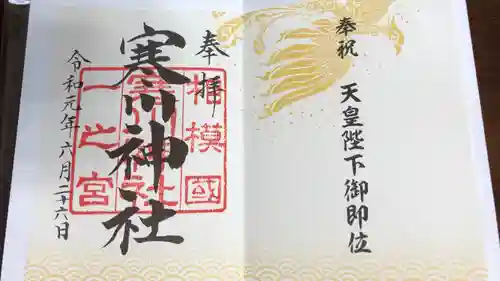 奉祝
天皇陛下御即位
奉拝
寒川神社
相模國
一之宮
寒川神社
令和元年六月二十六日